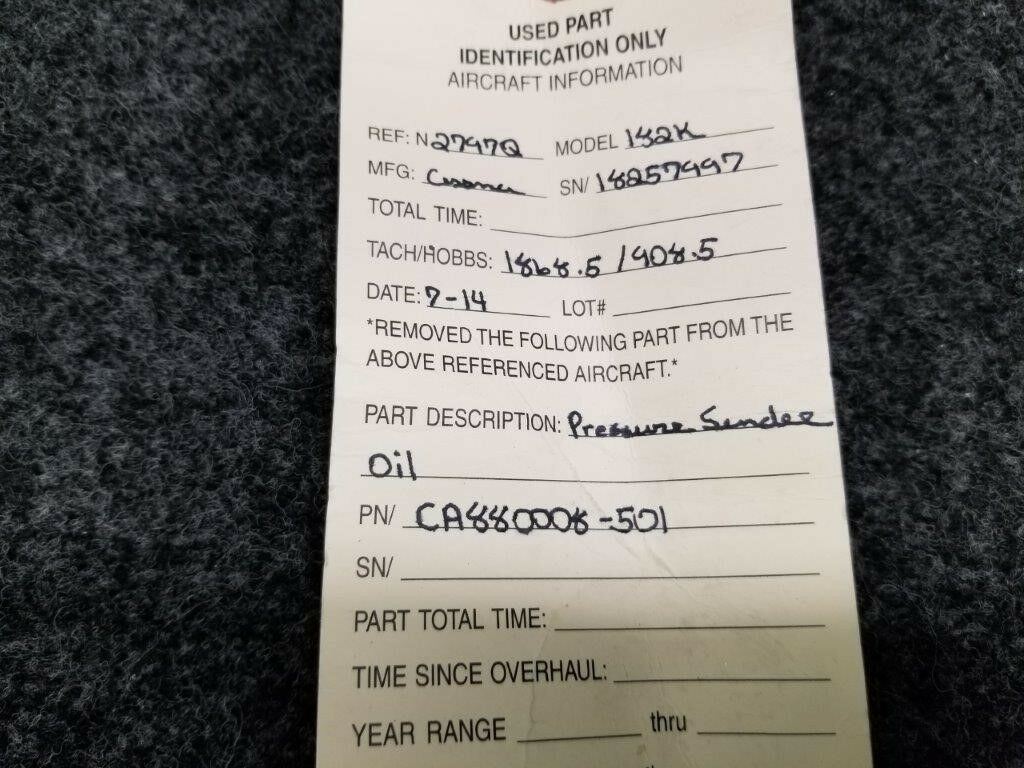 USED PART
IDENTIFICATION ONLY
AIRCRAFT INFORMATION
REF: N 2797Q MODEL 182K
MFG: Cessna SN/ 18257997
TOTAL TIME:
TACH/HOBBS: 1868.5 / 908.5
DATE: 7-14 LOT#
*REMOVED THE FOLLOWING PART FROM THE
ABOVE REFERENCED AIRCRAFT.*
PART DESCRIPTION: Pressure Sender
Oil
PN/ CA880008-501
SN/
PART TOTAL TIME:
TIME SINCE OVERHAUL:
YEAR RANGE thru